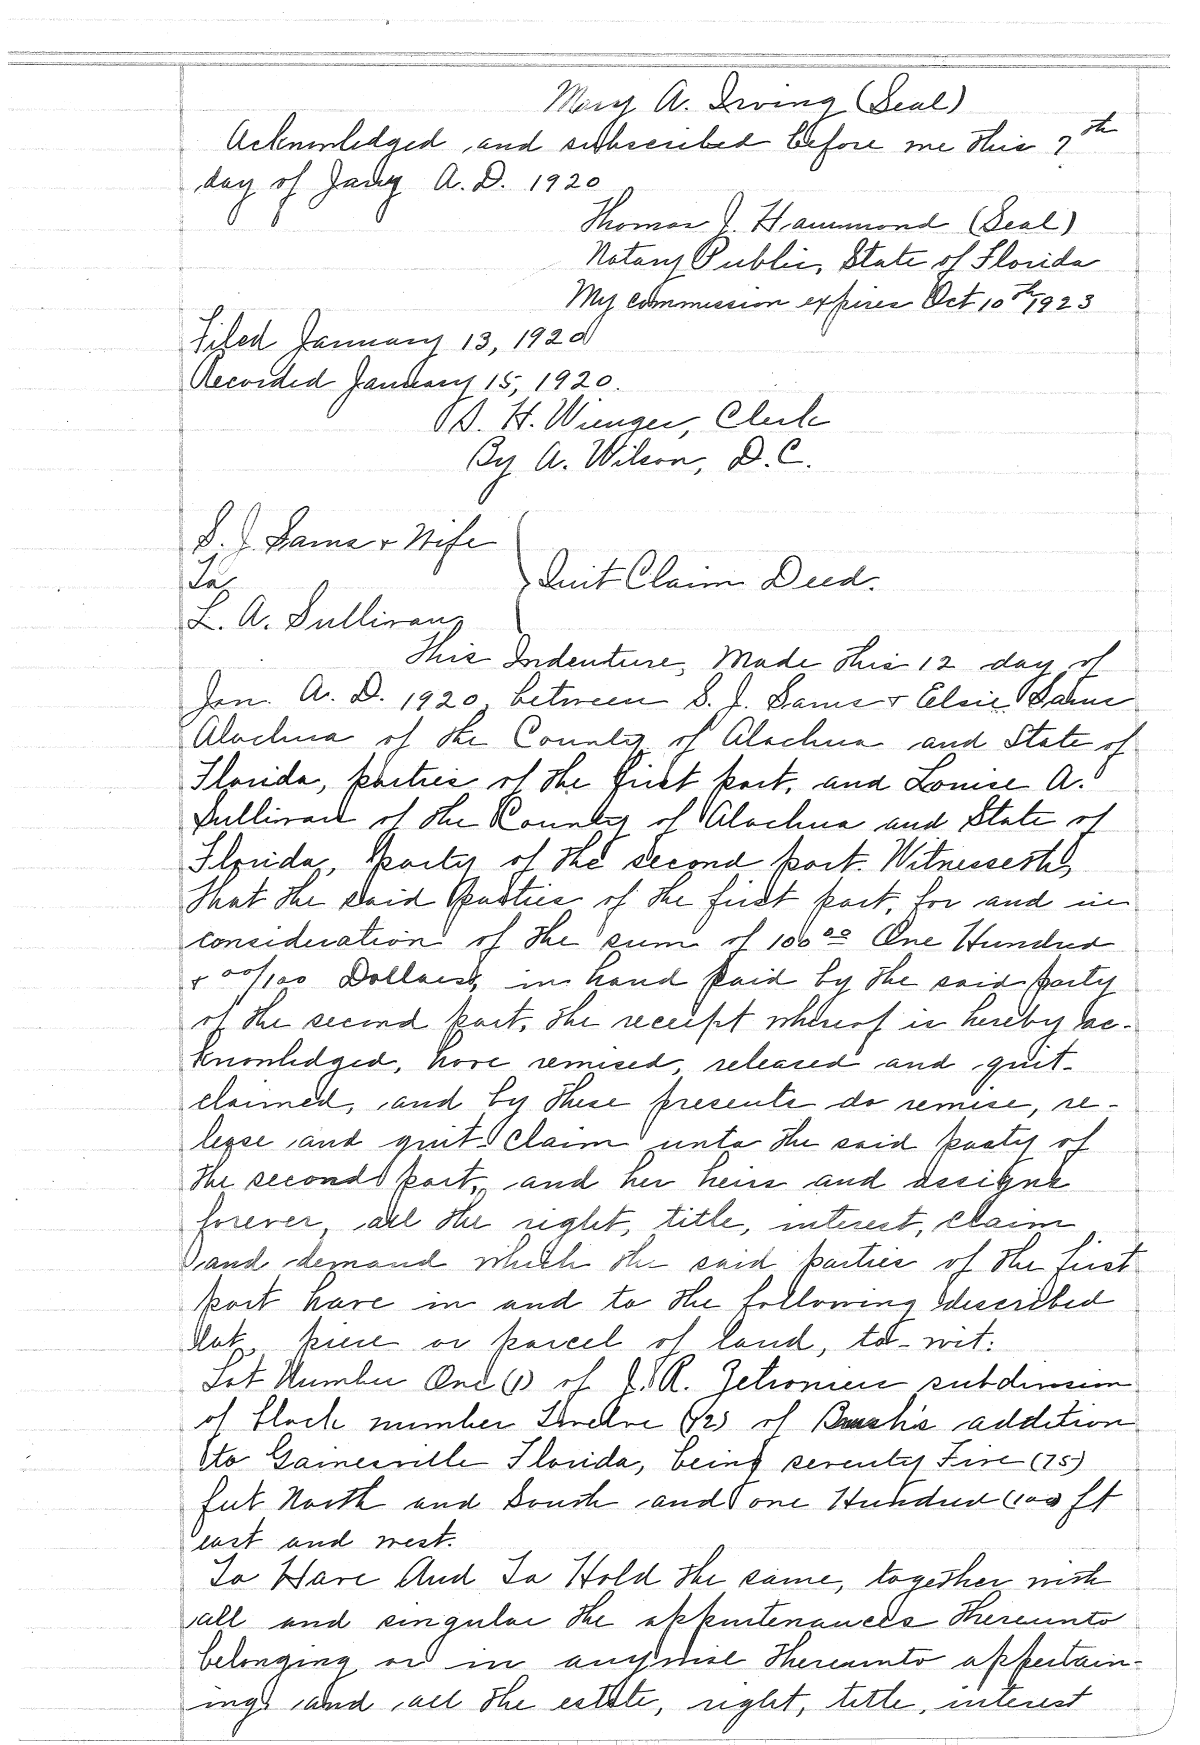 Mary A. Irving (Seal)
Acknowledged and subscribed before me this 7th
day of Jany A. D. 1920
Thomas J. Hammond (Seal)
Notary Public, State of Florida
My commission expires Oct 10th 1923
Filed January 13, 1920
Recorded January 15, 1920.
S. H. Wienges, Clerk
By A. Wilson, D. C.
S. J. Sams & Wife
To
Quit Claim Deed.
L. A. Sullivan
This Indenture, Made this 12 day of
Jan. A. D. 1920, between S. J. Sams & Elsie Sams
Alachua of the County of Alachua and State of
Florida, parties of the first part, and Louise A.
Sullivan of the County of Alachua and State of
Florida, party of the second part. Witnesseth,
that the said parties of the first part, for and in
consideration of the sum of 100 00 One Hundred
& 00/100 Dollars, in hand paid by the said party
of the second part, the receipt whereof is hereby ac-
knowledged, have remised, released and quit-
claimed, and by these presents do remise, re-
lease and quit-claim unto the said party of
the second part, and her heirs and assigns
forever, all the right, title, interest, claim
and demand which the said parties of the first
part have in and to the following described
lot, piece or parcel of land, to-wit:
Lot Number One (1) of J. R. subdivision
of block number Twelve (12) of Brush's addition
to Gainesville Florida, being seventy Five (75)
feet North and South and one Hundred (100) ft
east and west.
To Have And To Hold the same, together with
all and singular the appurtenances thereunto
belonging or in anywise thereunto appertain-
ing, and all the estate, right, title, interest